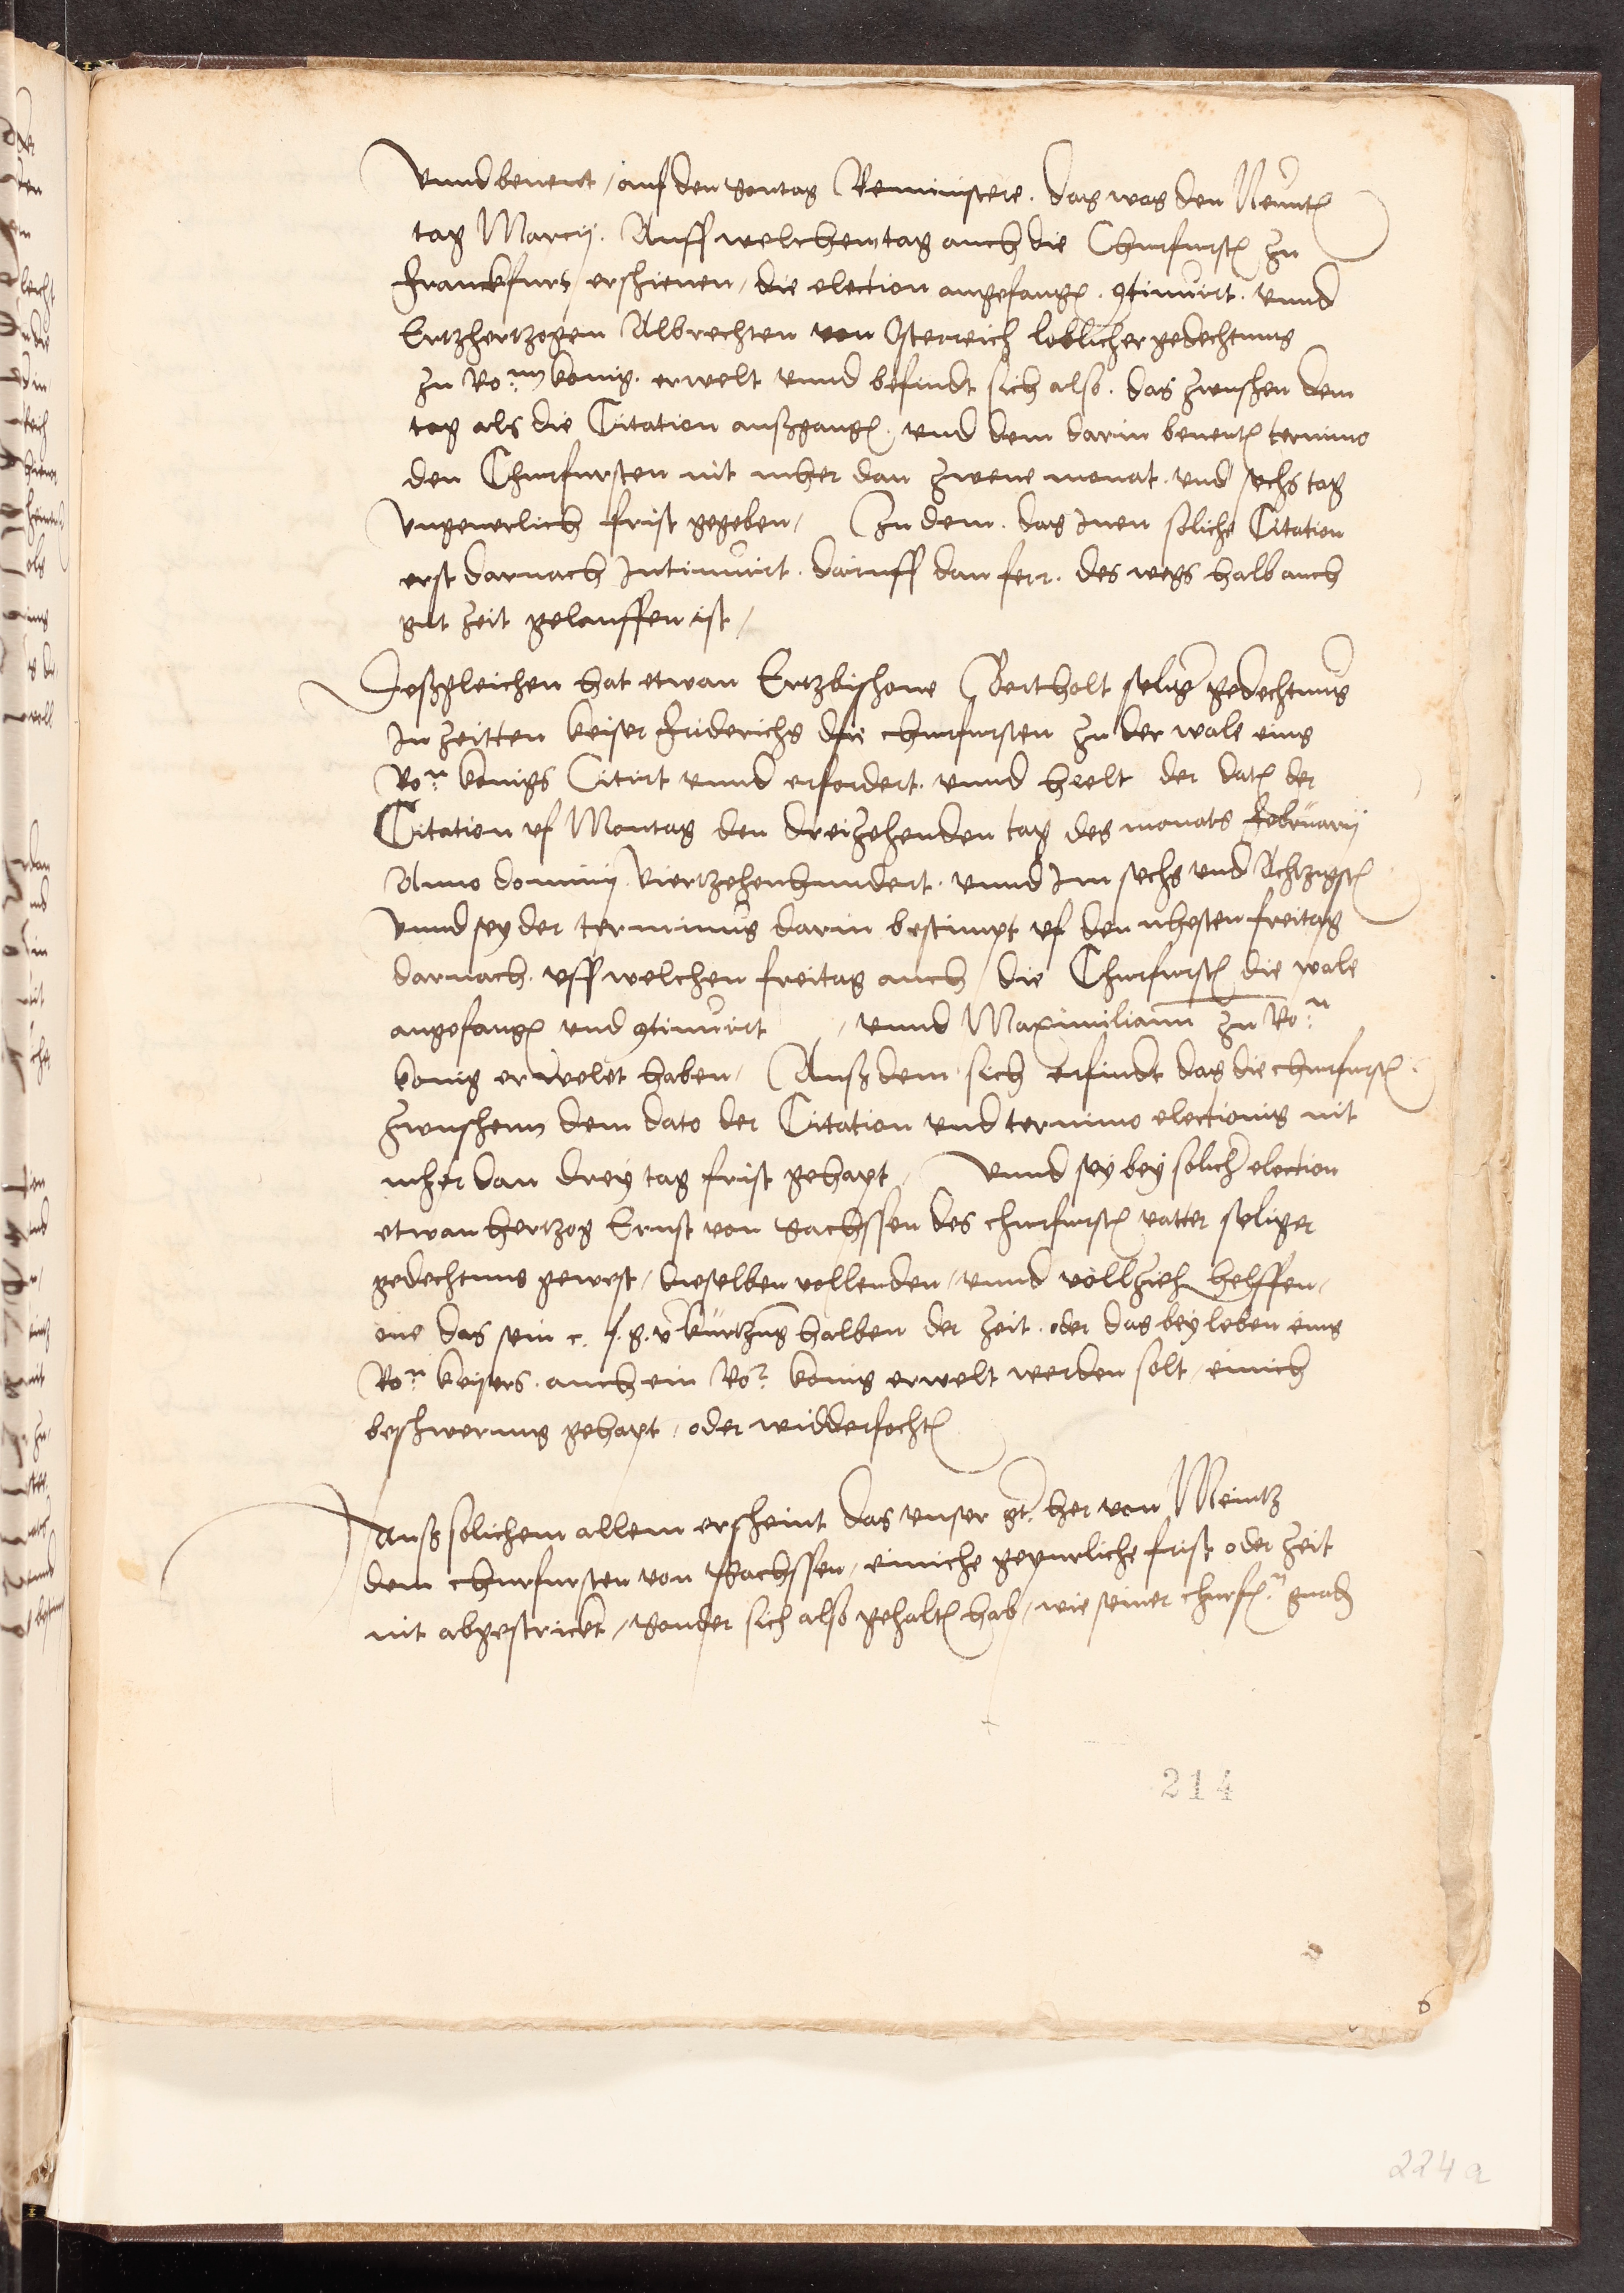 vnnd benent / auf den Sontag Reminiscere. das was den Neunt
tag Marcij. Auff welchem tag auch die Churfurst zu
Franckfurt erschienen / die election angefang. 9tinuirt. vnnd
Ertzhertzogen Albrechten von Osterreich loblicher gedechtnus
zu Ro:n konig. erwelt vnnd befindt sich also. das zwuschen dem
tag als die Citation außgang. vnd dem darin benent termino
den Churfursten nit mher dan zwene monat. vnd sechs tag
vngeuerlich frist gegeben / Zu dem. das Inen soliche Citation
erst darnach Intimirt. daruff dan ferr. des wegs halb auch
gut zeit gelauffen ist /
Deßgleichen hat etwan Ertzbischoue Bertholt selig gedechtnus
In zeitten keiser Friderichs die churfursten zu der wale eins
Ro:n konigs Citirt vnnd erfordert. vnnd heelt der dat der
Citation vf Montag den dreizehenden tag des monats Februarij
Anno dominij viertzehenhundert. vnnd Im sechs vnd Achtzigst
vnnd sey der terminus darin bestimpt vf den nhesten freitag
darnach. vff welchen freitag auch / die Churfurst die wale
angefang vnd 9tinuirt / vnnd Maximiliann zu Ro:n
konig erwelet haben / Auß dem sich erfindt das die churfurst
zwuschenn dem dato der Citation vnd termino electionis nit
mher dan drey tag frist gehapt / vnnd sey bey solich election
etwan hertzog Ernst von Sachssen des churfurst vatter seliger
gedechtnus gewest / dieselben vollenden / vnnd vollzieh helffen /
one das sein c. f. g. v kurtzung halben der zeit. oder das bey leben eins
Ro:n keysers. auch ein Ro: konig erwelt werden solt / einich
beschwerung gehapt / oder widderfocht
Auß solichem allem erscheint das vnser gt. her von Meintz
dem churfursten von Sachssen / einiche gepurliche frist oder zeit
nit abgestrickt / Sonder sich also gehalt hab / wie seiner churf:n gnad
214
6
224a